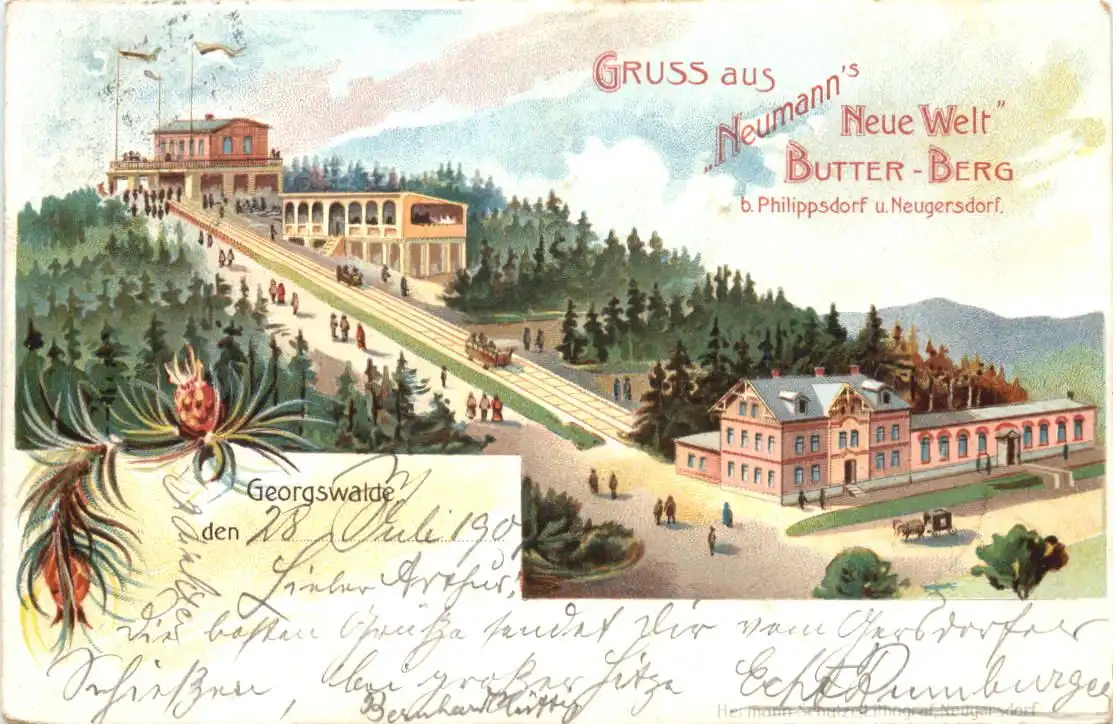 GRUSS AUS
„Neumann's
NEUE WELT"
BUTTER-BERG
b. Philippsdorf u. Neugersdorf.
Georgswalde,
den 28 Juli 190
Lieber Arthur,
Die besten Grüße sendet Dir vom Gersdorfer
Schießen, bei großer Hitze Echt Rumburger
Bernhard
Hermann Schulze Lithograf Neugersdorf